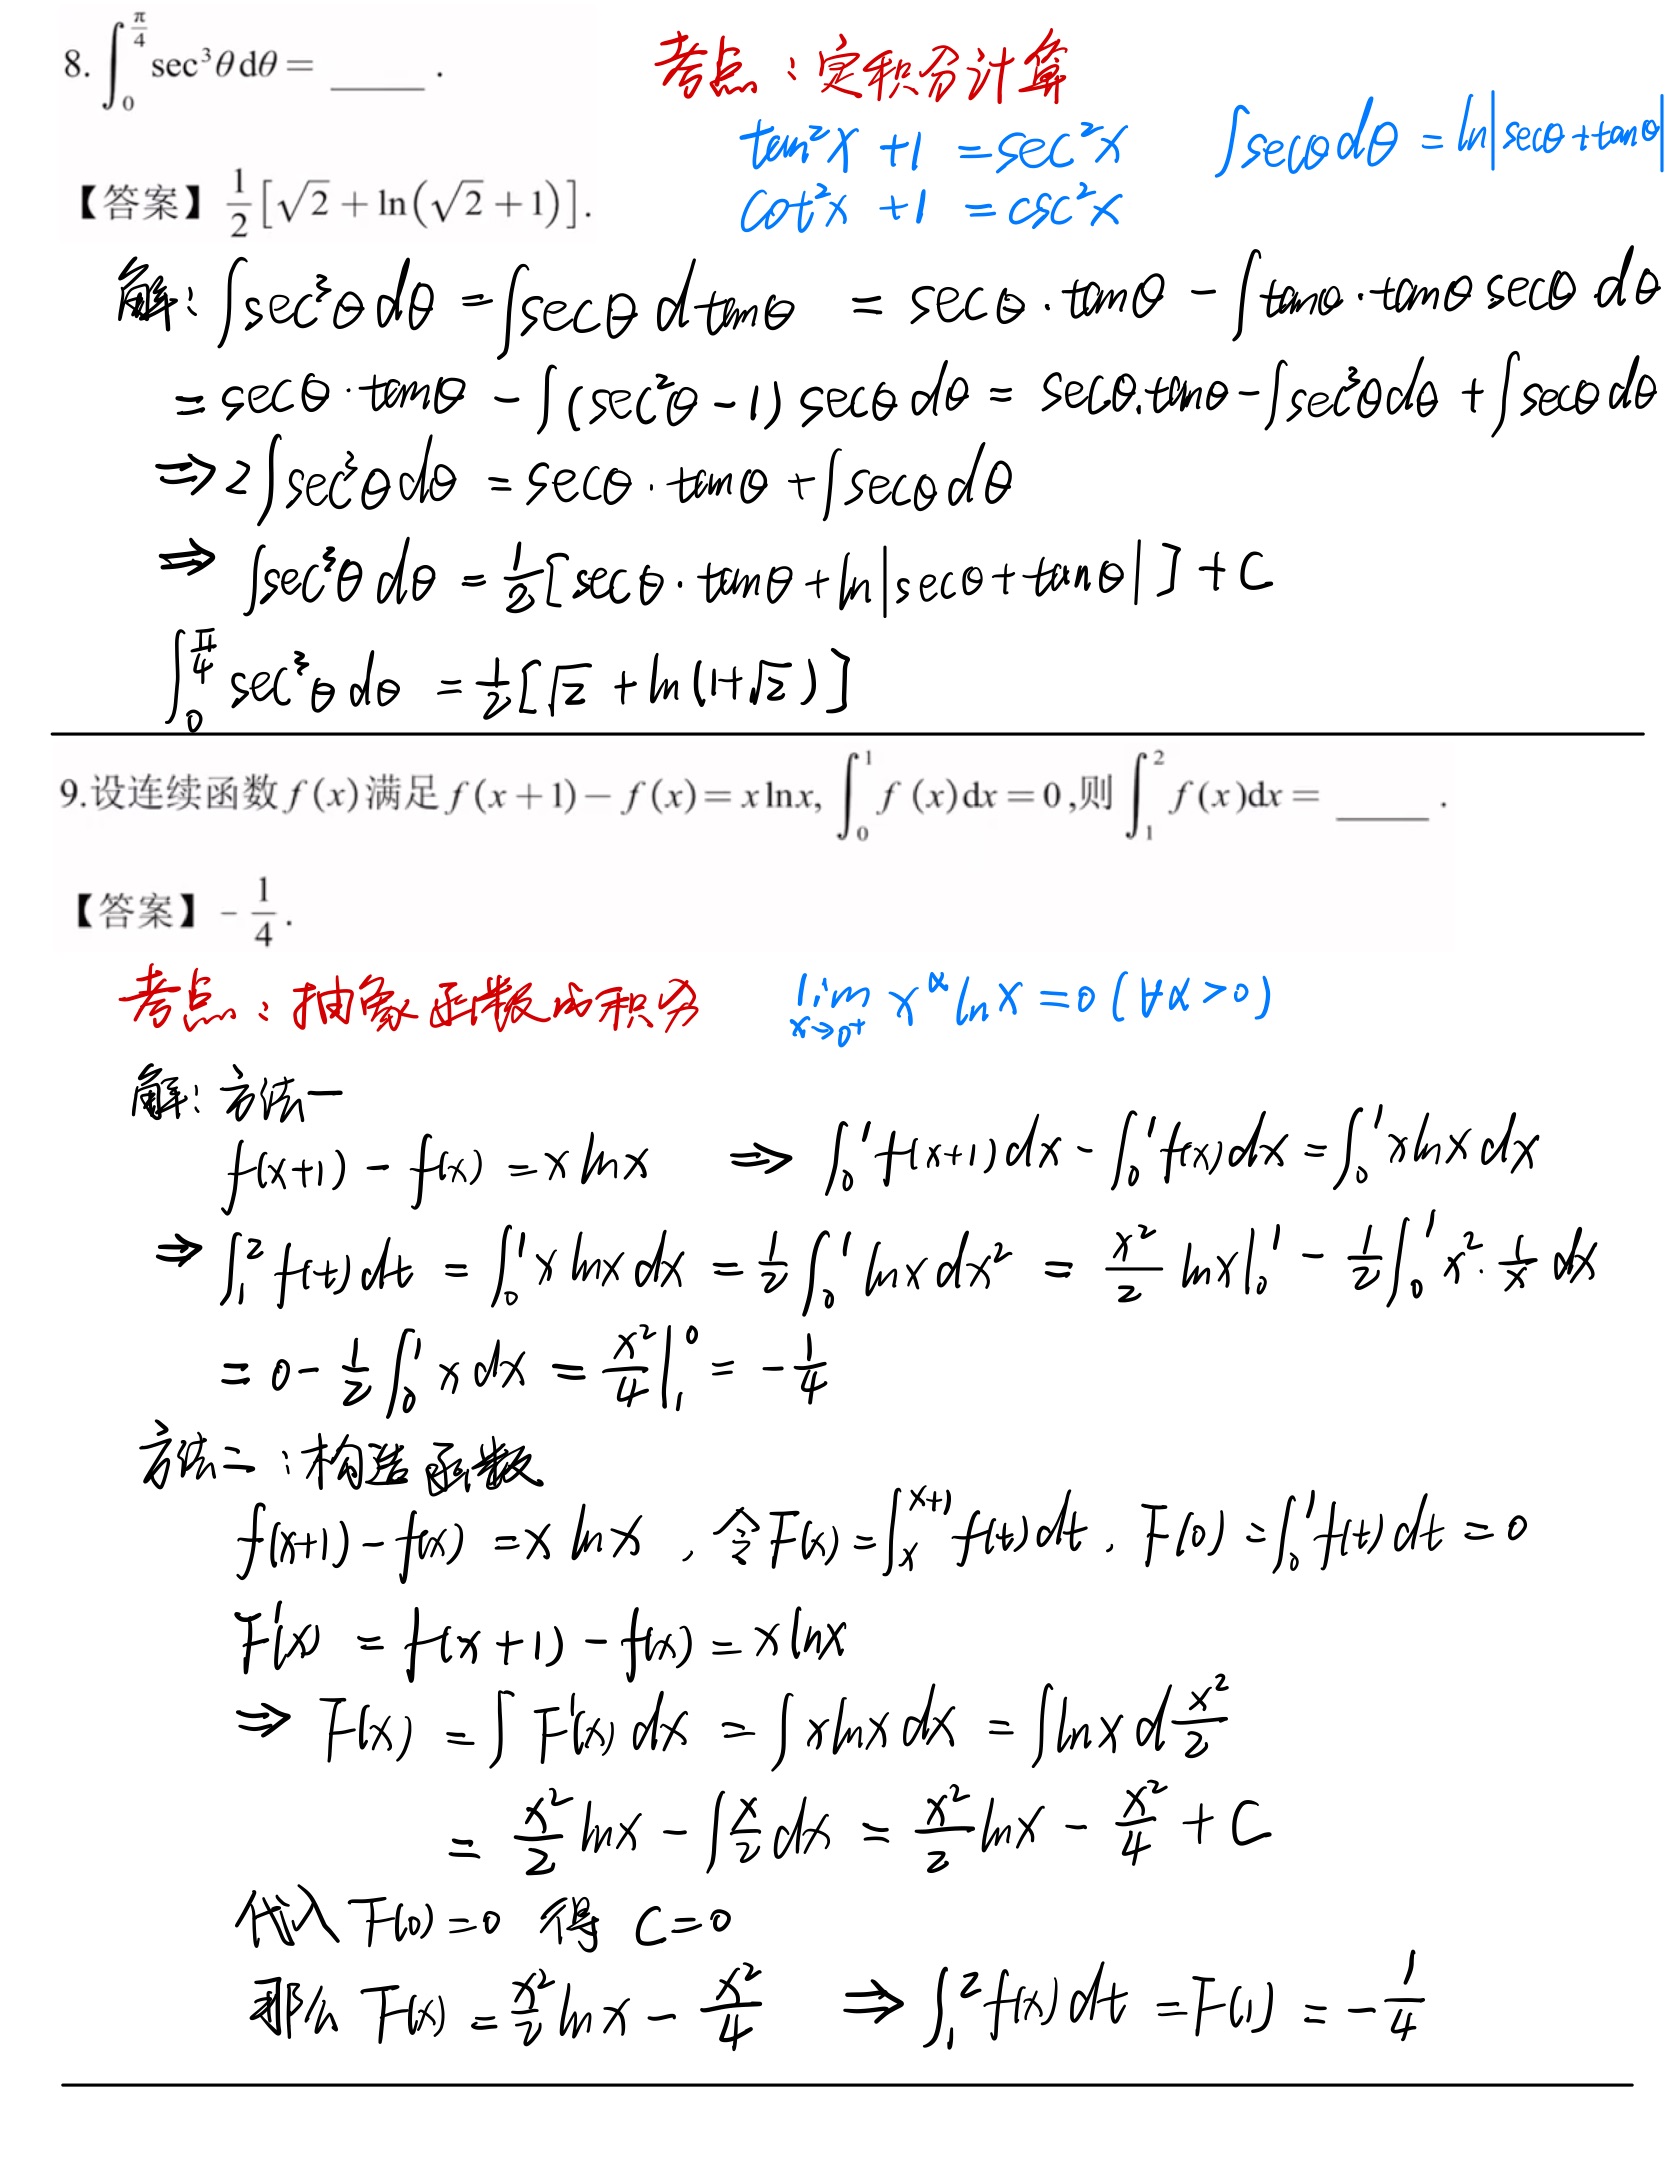 8. ∫₀^{π/4} sec³θdθ = _____ .
考点：定积分计算
tan²x +1 = sec²x
∫secθdθ = ln|secθ+tanθ|
cot²x +1 = csc²x
【答案】 1/2 [√2 + ln(√2 + 1)].
解: ∫sec³θdθ = ∫secθ d tanθ = secθ·tanθ - ∫tanθ·tanθ secθ dθ
= secθ·tanθ - ∫(sec²θ-1) secθ dθ = secθ·tanθ - ∫sec³θdθ + ∫secθdθ
⇒ 2∫sec³θdθ = secθ·tanθ + ∫secθdθ
⇒ ∫sec³θdθ = 1/2[secθ·tanθ + ln|secθ+tanθ|] + C
∫₀^{π/4} sec³θdθ = 1/2[√2 + ln(1+√2)]
9.设连续函数 f(x)满足 f(x+1) - f(x) = x ln x, ∫₀¹ f (x)dx = 0 ,则 ∫₁² f(x)dx = _____ .
【答案】 - 1/4 .
考点：抽象函数的积分
lim_{x→0⁺} x^α ln x = 0 (∀α>0)
解: 方法一
f(x+1) - f(x) = x ln x ⇒ ∫₀¹ f(x+1)dx - ∫₀¹ f(x)dx = ∫₀¹ x ln x dx
⇒ ∫₁² f(t)dt = ∫₀¹ x ln x dx = 1/2 ∫₀¹ ln x dx² = x²/2 ln x|₀¹ - 1/2 ∫₀¹ x²·1/x dx
= 0 - 1/2 ∫₀¹ x dx = x²/4 |₁⁰ = - 1/4
方法二：构造函数
f(x+1) - f(x) = x ln x , 令F(x) = ∫ₓ^{x+1} f(t)dt , F(0) = ∫₀¹ f(t)dt = 0
F'(x) = f(x+1) - f(x) = x ln x
⇒ F(x) = ∫F'(x)dx = ∫x ln x dx = ∫ln x d x²/2
= x²/2 ln x - ∫x/2 dx = x²/2 ln x - x²/4 + C
代入 F(0)=0 得 C=0
那么 F(x) = x²/2 ln x - x²/4 ⇒ ∫₁² f(x)dt = F(1) = - 1/4